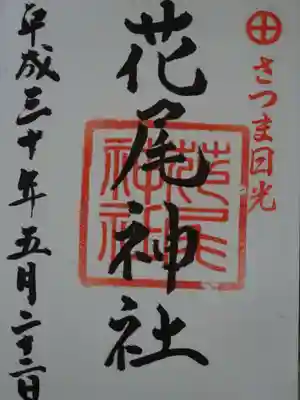 さつま日光
花尾神社
花尾神社
平成三十年五月二十二日